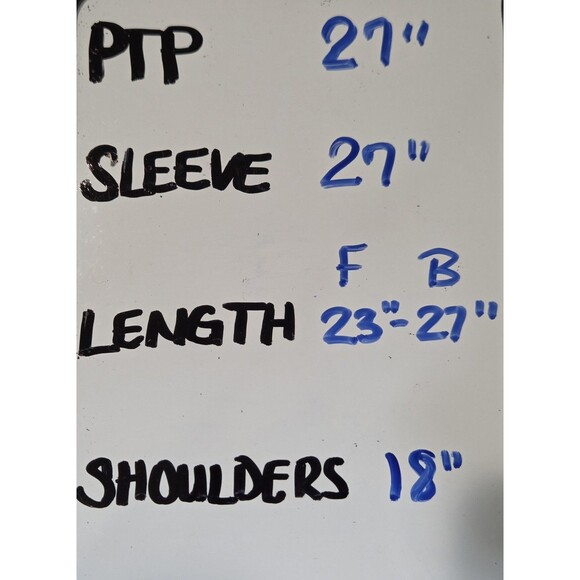 PTP 27"
SLEEVE 27"
F B
LENGTH 23"-27"
SHOULDERS 18"